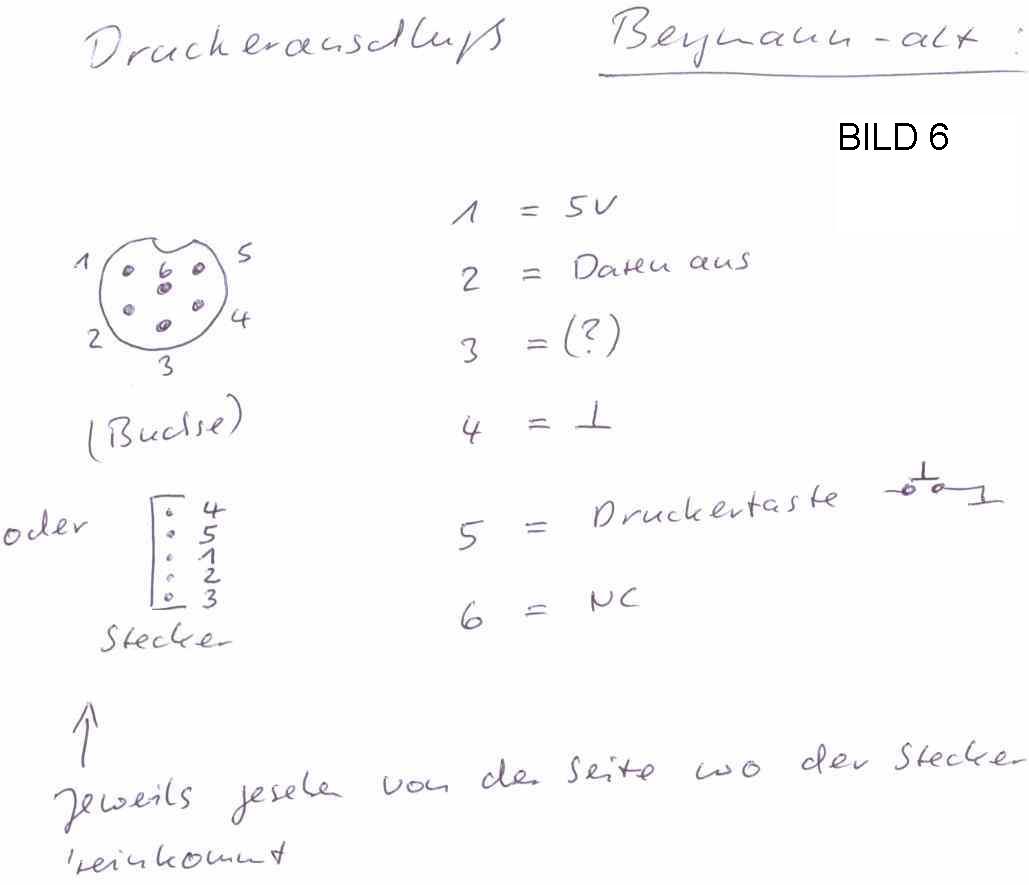 Druckeranschluß Bergmann-alt:
BILD 6
1 = 5V
2 = Daten aus
3 = (?)
4 = ⊥
5 = Druckertaste
6 = NC
1 6 5
2 4
3
(Buchse)
oder
4
5
1
2
3
Stecker
↑
Jeweils gesehen von der Seite wo der Stecker
'reinkommt